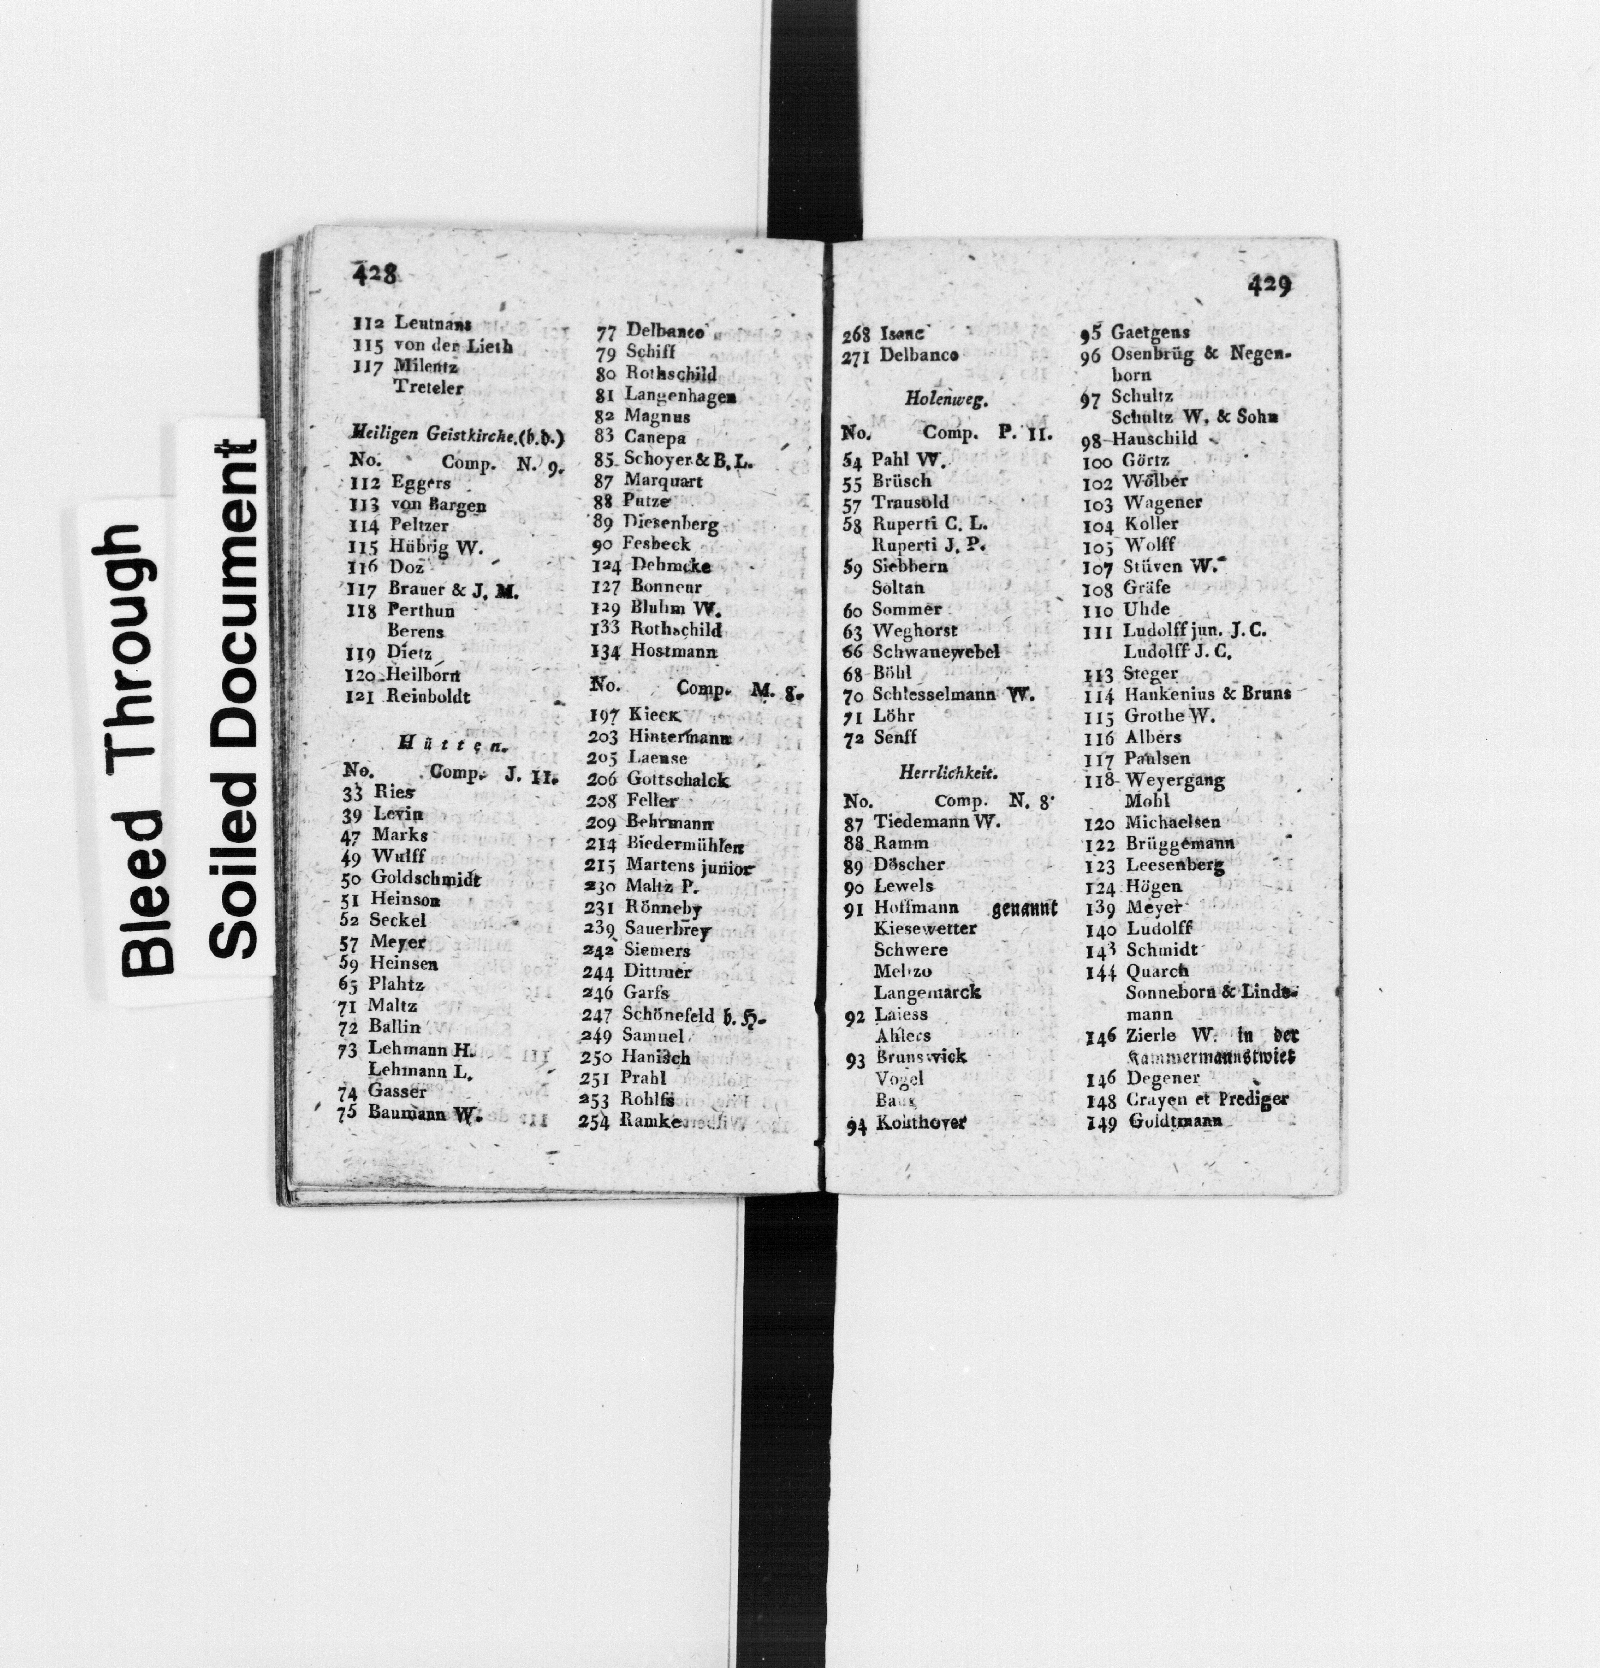 Bleed Through
Soiled Document
428
112 Leutnans
115 von der Lieth
117 Milentz
Treteler
Heiligen Geistkirche.(b.d.)
No. Comp. N. 9.
112 Eggers
113 von Bargen
114 Peltzer
115 Hübrig W.
116 Doz
117 Brauer & J. M.
118 Perthun
Berens
119 Dietz
120 Heilborn
121 Reinboldt
Hütten.
No. Comp. J. 11.
33 Ries
39 Levin
47 Marks
49 Wulff
50 Goldschmidt
51 Heinson
52 Seckel
57 Meyer
59 Heinsen
65 Plahtz
71 Maltz
72 Ballin
73 Lehmann H.
Lehmann L.
74 Gasser
75 Baumann W.
77 Delbanco
79 Schiff
80 Rothschild
81 Langenhagen
82 Magnus
83 Canepa
85 Schoyer & B. L.
87 Marquart
88 Putze
89 Diesenberg
90 Fesbeck
124 Dehmcke
127 Bonneur
129 Bluhm W.
133 Rothschild
134 Hostmann
No. Comp. M. 8.
197 Kieck
203 Hintermann
205 Laense
206 Gottschalck
208 Feller
209 Behrmann
214 Biedermühlen
215 Martens junior
230 Maltz P.
231 Rönneby
239 Sauerbrey
242 Siemers
244 Dittmer
246 Garfs
247 Schönefeld b. H.
249 Samuel
250 Hanisch
251 Prahl
253 Rohlfs
254 Ramke
429
268 Isaac
271 Delbanco
Holenweg.
No. Comp. P. 11.
54 Pahl W.
55 Brüsch
57 Trausold
58 Ruperti C. L.
Ruperti J. P.
59 Siebbern
Soltan
60 Sommer
63 Weghorst
66 Schwanewebel
68 Böhl
70 Schlesselmann W.
71 Löhr
72 Senff
Herrlichkeit.
No. Comp. N. 8.
87 Tiedemann W.
88 Ramm
89 Döscher
90 Lewels
91 Hoffmann genannt
Kiesewetter
Schwere
Mehzo
Langemarck
92 Laiess
Ahlers
93 Brunswick
Vogel
94 Kohthover
95 Gaetgens
96 Osenbrüg & Negen-
born
97 Schultz
Schultz W. & Sohn
98 Hauschild
100 Görtz
102 Wölber
103 Wagener
104 Koller
105 Wolff
107 Stüven W.
108 Gräfe
110 Uhde
111 Ludolff jun. J. C.
Ludolff J. C.
113 Steger
114 Hankenius & Bruns
115 Grothe W.
116 Albers
117 Paulsen
118 Weyergang
Mohl
120 Michaelsen
122 Brüggemann
123 Leesenberg
124 Högen
139 Meyer
140 Ludolff
143 Schmidt
144 Quarch
Sonneborn & Linde-
mann
146 Zierle W. in der
Kammermannstwiet
146 Degener
148 Crayen et Prediger
149 Goldtmann